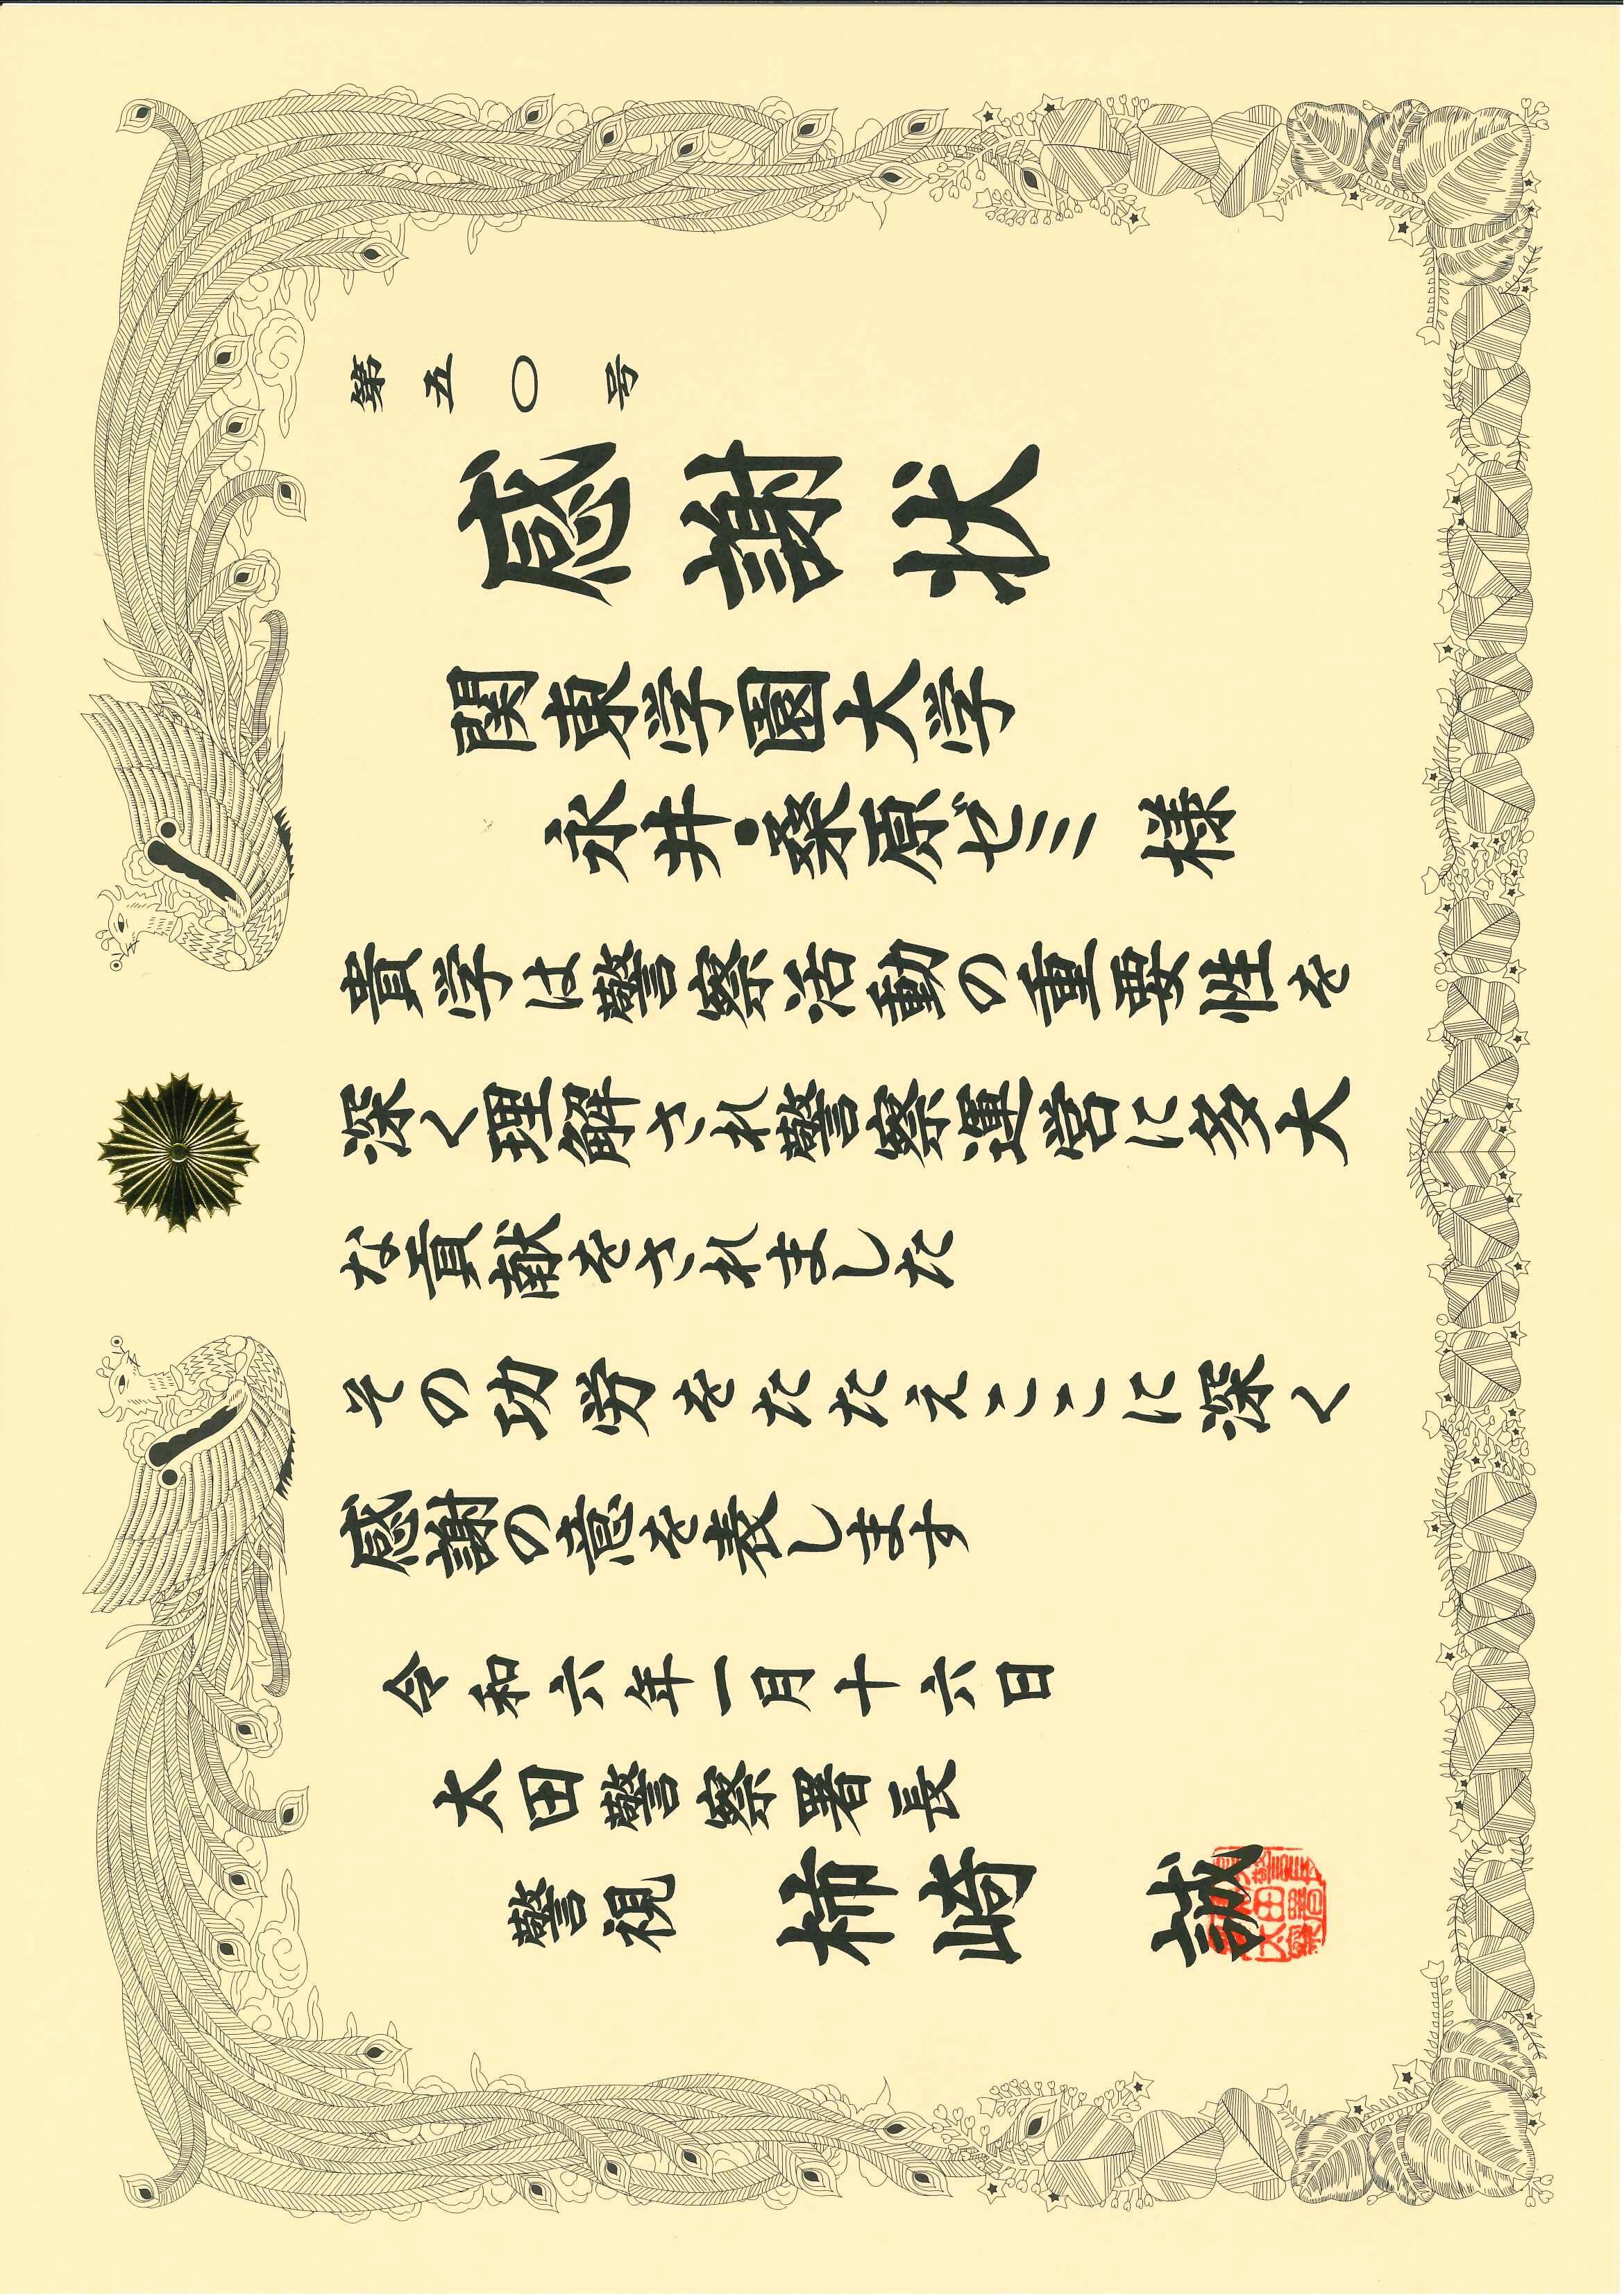 第五〇号
感謝状
関東学園大学
永井・桑原ゼミ 様
貴学は警察活動の重要性を
深く理解され警察運営に多大
な貢献をされました
その功労をたたえここに深く
感謝の意を表します
令和六年一月十六日
太田警察署長
警視 柿崎 誠